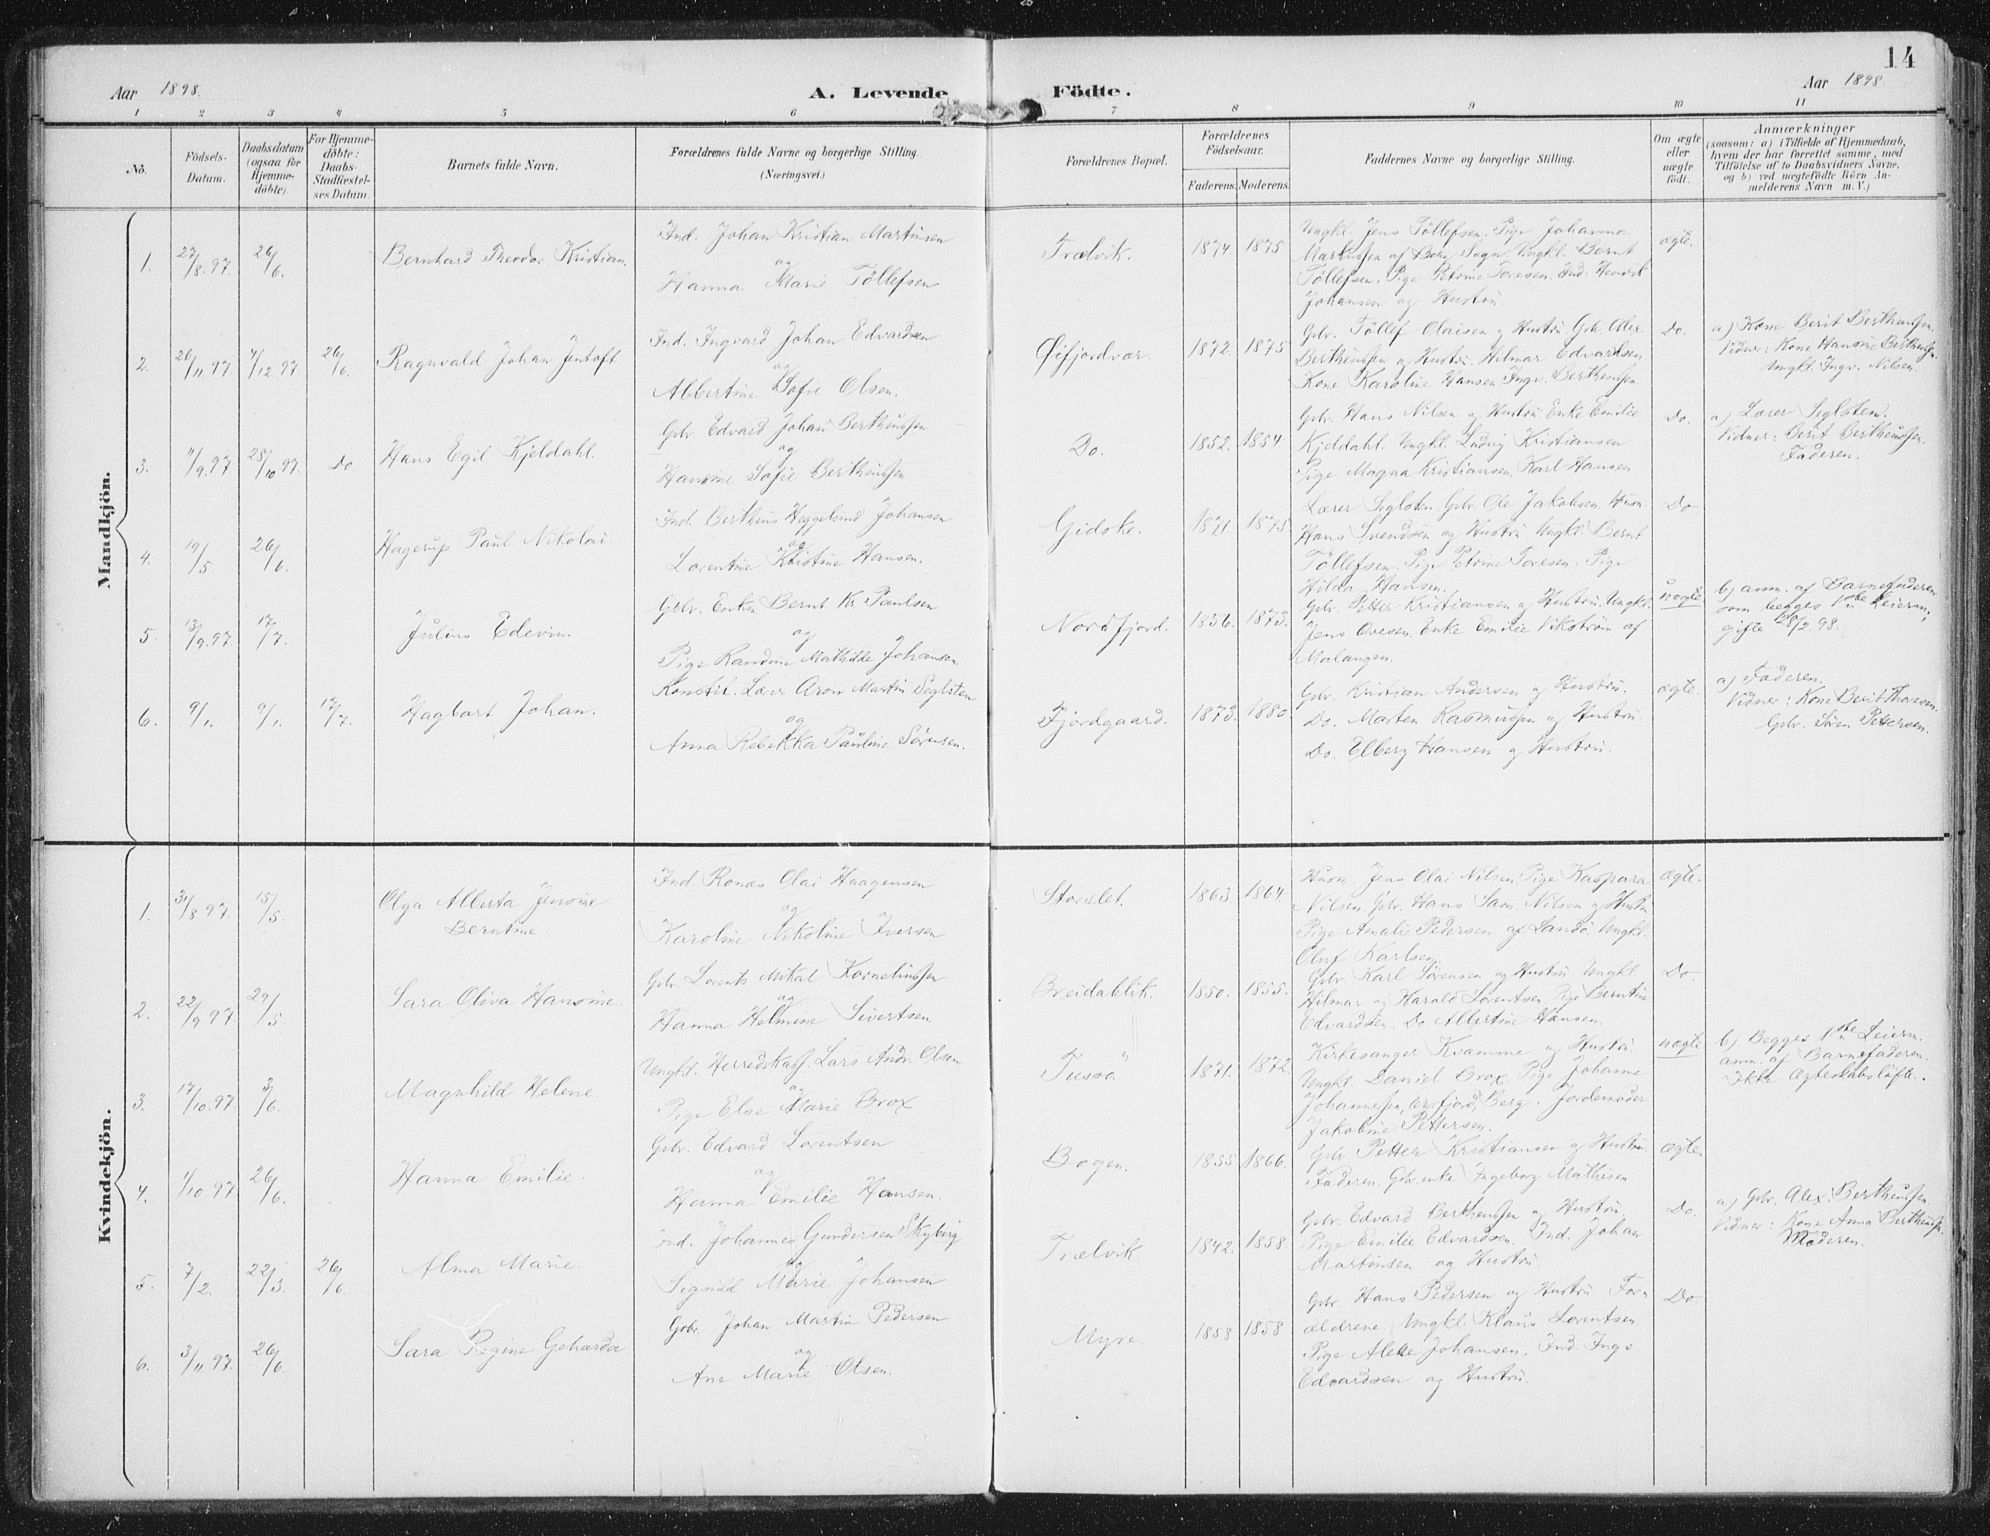 14
Aar 1898. A. Levende Födte. Aar 1898.
1 2 3 4 5 6 7 8 9 10 11
No.
Födsels-
Datum.
Daabsdatum
(ogsaa for
Hjemme-
döbte).
For Hjemme-
döbte:
Daabs-
Stadfæstel-
ses Datum.
Barnets fulde Navn.
Forældrenes fulde Navne og borgerlige Stilling.
(Næringsvei.)
Forældrenes Bopæl.
Forældrenes
Födselsaar.
Faderens. Moderens.
Faddernes Navne og borgerlige Stilling.
Om ægte
eller
uægte
födt.
Anmærkninger
(saasom: a) i Tilfælde af Hjemmedaab,
hvem der har forrettet samme, med
Tilföielse af to Daabsvidners Navne,
og b) ved uægtefödte Börn An-
melderens Navn m. V.)
Mandkjön.
1. 27/8.97. 26/6. Bernhard Theodor Kristian.
Ind. Johan Kristian Martinsen
og
Hanna Marie Töllefsen
Trælvik. 1874. 1875
Ungkl. Jens Töllefsen. Pige Johanna
Markussen af Berg Sogn. Ungkl. Bernt
Töllefsen. Pige Petrine Toresen. Ind. Henrik
Johansen og Hustru.
ægte.
2. 26/11.97. 7/12.97 26/6. Ragnvald Johan Jentoft.
Ind. Ingvard Johan Edvardsen
og
Albertine Sofie Olsen.
Øifjordvær. 1872. 1875
Gbr. Töllef Olaisen og Hustru. Gbr. Oder
Bertheussen og Hustru. Hilmar Edvardsen
Kone Karoline Hansen. Ingv. Bertheussen.
Do.
a) Kone Berit Bertheussen.
Vidner: Kone Hansine Bertheussen.
Ungkl. Ingv. Nilsen.
3. 11/9.97 28/10.97. Do. Hans Egil Kjeldahl.
Gbr. Edvard Johan Bertheussen
og
Hansine Sofie Bertheussen
Do. 1852. 1854
Gbr. Hans Nilsen og Hustru Enke Emilie
Kjeldahl. Ungkl. Ludvig Kristiansen
Pige Magna Kristiansen. Karl Hansen
Do.
a) Lærer Siglsten.
Vidner: Berit Bertheussen.
Faderen.
4. 19/5 26/6. Hagerup Paul Nikolai.
Ind. Bertheus Heggelund Johansen
og
Lorentine Kristine Hansen.
Gidske. 1871 1875
Lærer Siglsten. Gbr. Ole Jakobsen. Husm.
Hans Svendsen og Hustru Ungkl. Bernt
Töllefsen. Pige Petrine Toresen. Pige
Hilda Hansen.
Do
5. 13/9.97. 17/7. Julius Edevin.
Gbr. Enkem. Bernt Kr. Paulsen
og
Pige Randine Mathilde Johansen.
Nordfjord. 1856. 1873.
Gbr. Petter Kristiansen og Hustru. Ungkl.
Jens Ovesen. Enke Emilie Vikström af
Malangen.
uægte
b) anm. af Barnefaderen
som begges 1ste Leierm;
gifte 28/2.98.
6. 9/1. 9/1. 17/7. Hagbart Johan.
Konstit. Lærer Aron Martin Siglsten
og
Anna Rebekka Pauline Sörensen.
Fjordgaard. 1873. 1880.
Gbr. Kristian Andersen og Hustru.
Do. Morten Rasmussen og Hustru.
Do. Elberg Hansen og Hustru.
ægte.
a) Faderen.
Vidner: Kone Berit Thoresen.
Gbr. Sören Pettersen.
Kvindekjön.
1. 31/8 97. 15/5. Olga Alberta Jensine
Berntine.
Ind. Ronæs Olai Haagensen
og
Karoline Nikoline Iversen
Storslet. 1863 1864.
Husm. Jens Olai Nilsen. Pige Kaspara
Nilsen. Gbr. Hans Sam. Nilsen og Hustru
Pige Amalie Pedersen af Sandö. Ungkl.
Oluf Karlsen.
ægte.
2. 22/9 97. 29/5. Sara Oliva Hansine.
Gbr. Lorents Mikal Korneliussen
og
Hanna Helmine Sivertsen.
Breidablik. 1850. 1855.
Gbr. Karl Sörensen og Hustru Ungkl.
Hilmar og Harald Lorentsen. Pige Berntine
Edvardsen. Do. Albertine Hansen.
Do
3. 17/10.97. 3/6. Magnhild Helene.
Ungkl. Herredskass. Lars Andr. Olsen
og
Pige Else Marie Brox
Tussö. 1871. 1872.
Kirkesanger Kvamme og Hustru.
Ungkl. Daniel Brox. Pige Johanne
Johannessen, Ersfjord, Berg. Jordemoder
Jakobine Pettersen.
uægte
b) Begges 1ste Leierm.
anm. af Barnefaderen.
Ikke Ægteskabslöfte.
4. 1/10.97. 26/6. Hanna Emilie.
Gbr. Edvard Lorentsen
og
Hanna Emilie Hansen.
Bogen. 1855 1866.
Gbr Petter Kristiansen og Hustru.
Faderen. Gbr.enke Ingeborg Mathisen
ægte.
5. 7/2. 22/3 26/6. Alma Marie.
Ind. Johannes Gundersen Skyberg
og
Sigrild Marie Johansen
Trælvik 1842. 1858.
Gbr. Edvard Bertheussen og Hustru.
Pige Emilie Edvardsen. Ind. Johan
Martinsen og Hustru.
Do.
a) Gbr. Alex. Bertheussen.
Vidner: Kone Anna Bertheussen.
Moderen.
6. 3/11.97. 26/6. Sara Regine Geharda
Gbr. Johan Martin Pedersen
og
Ane Marie Olsen.
Myre. 1858 1858
Gbr. Hans Pedersen og Hustru For-
ældrene, Ungkl. Klaus Lorentsen
Pige Aleke Johansen. Ind. Ing.
Edvardsen og Hustru.
Do